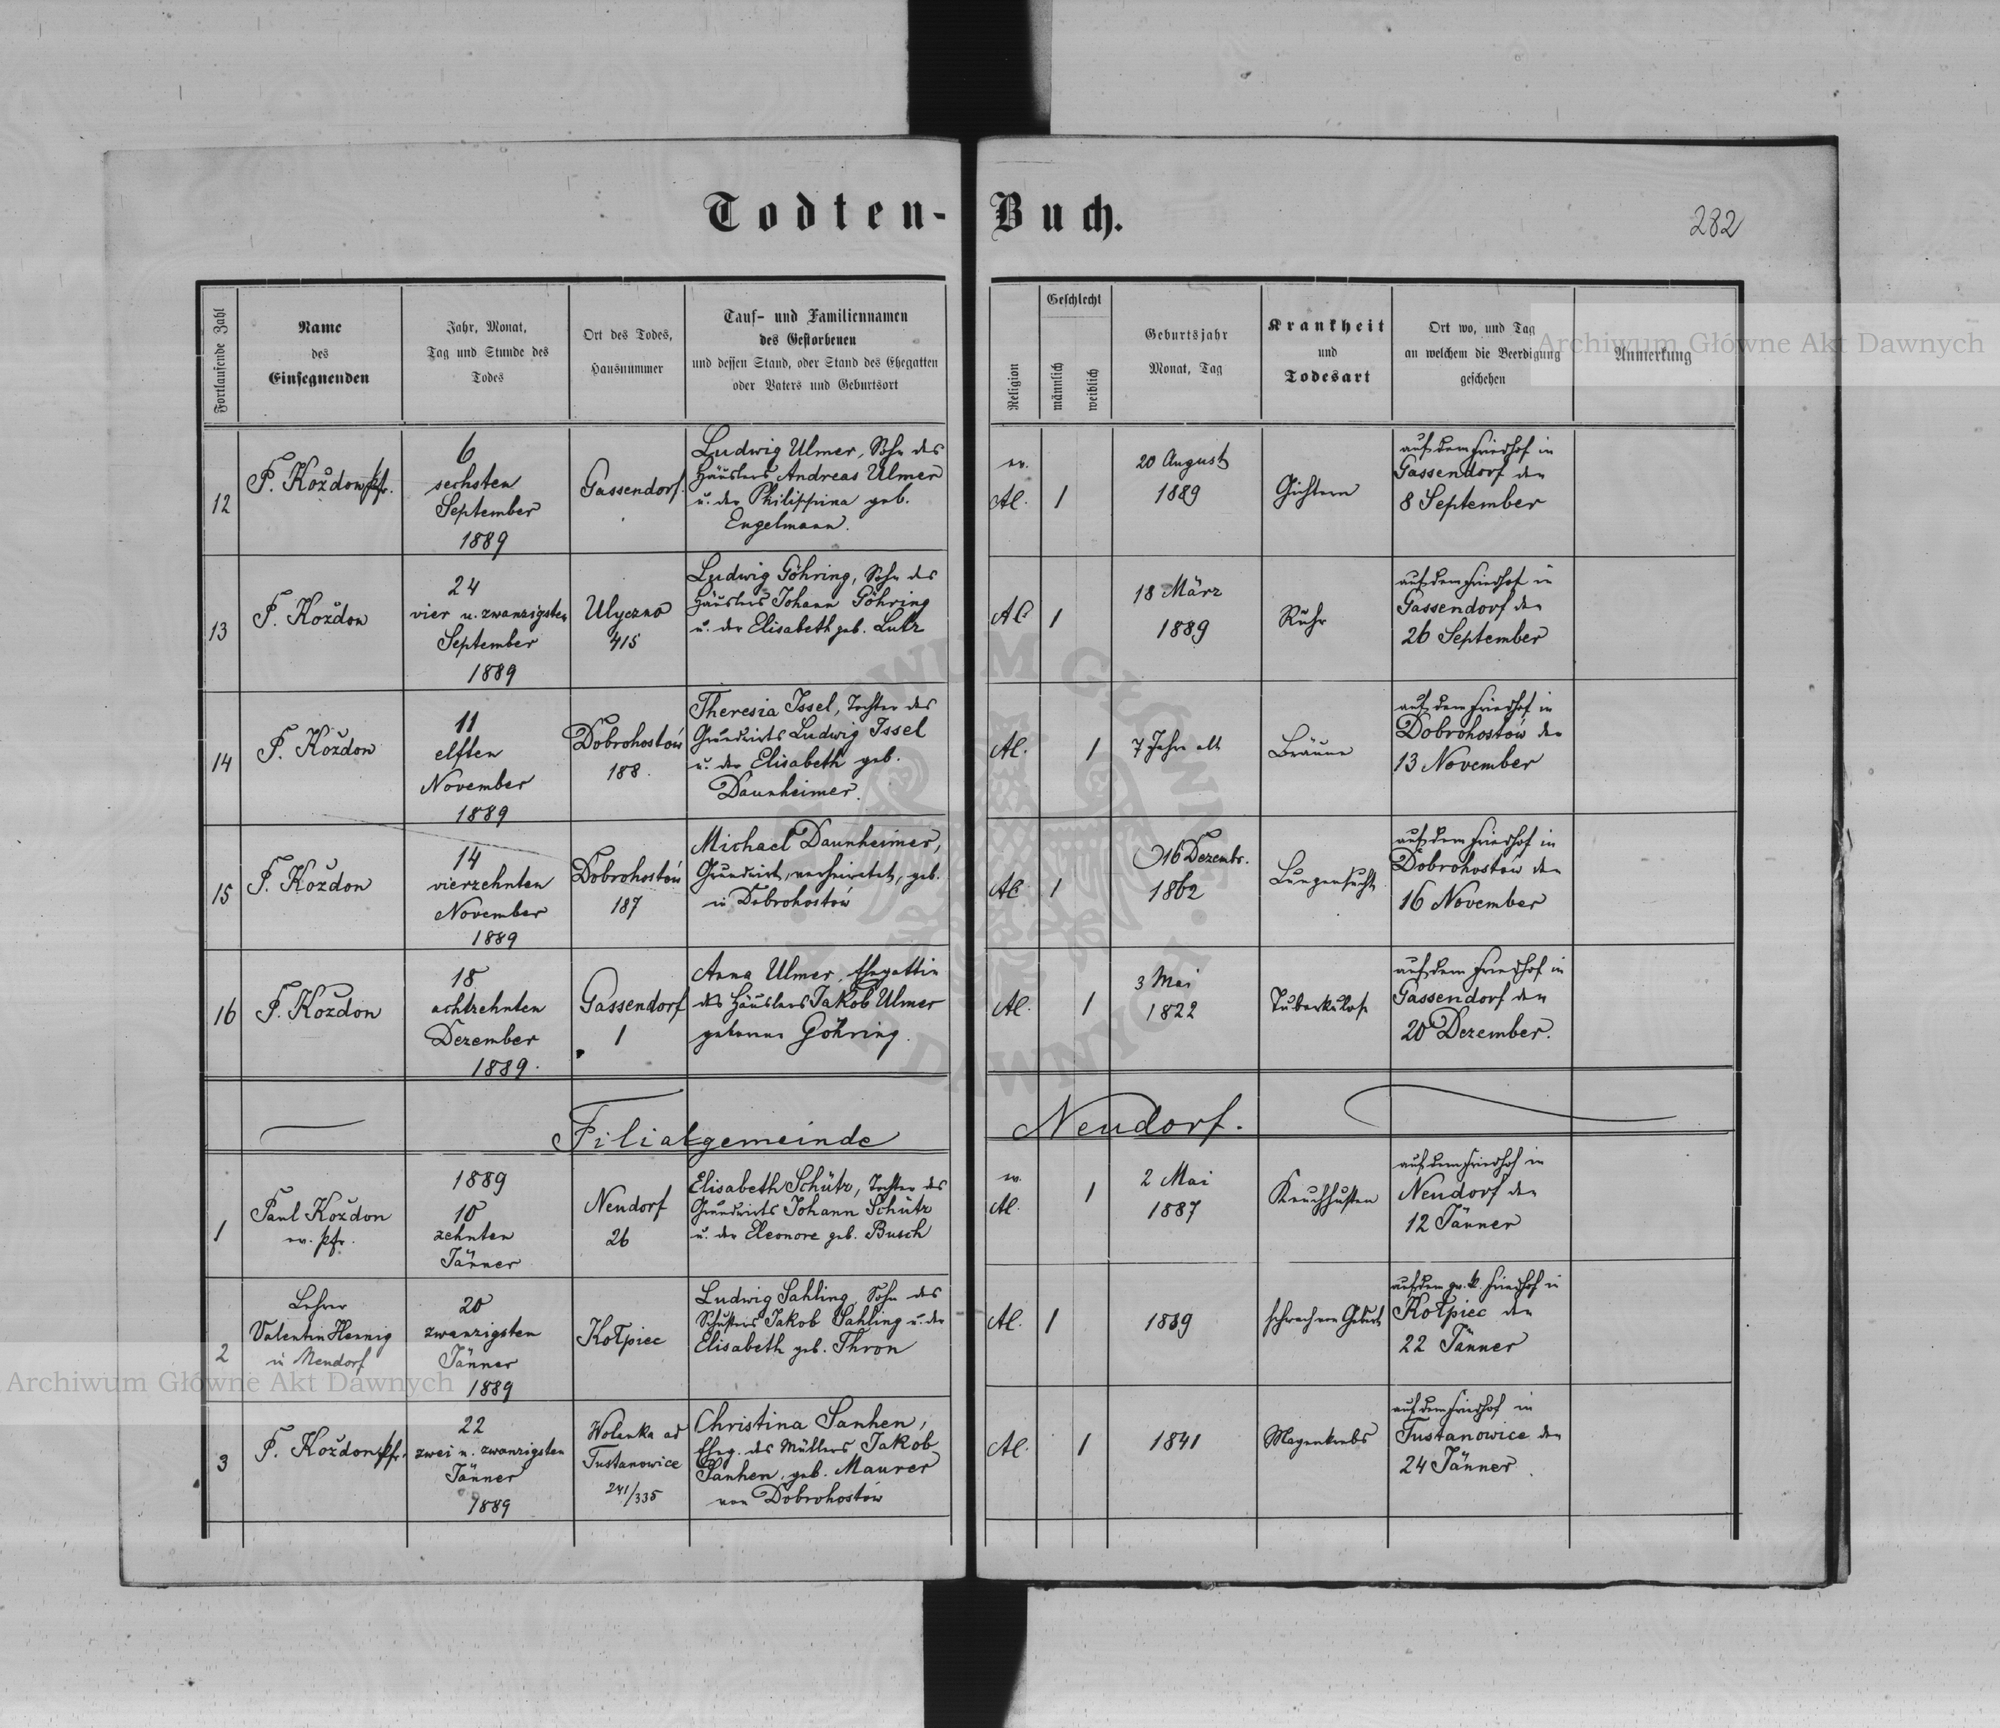 Todten-Buch.
282
Fortlaufende Zahl
Name
des
Einsegnenden
Jahr, Monat,
Tag und Stunde des
Todes
Ort des Todes,
Hausnummer
Tauf- und Familiennamen
des Gestorbenen
und dessen Stand, oder Stand des Ehegatten
oder Vaters und Geburtsort
Religion
Geschlecht
männlich
weiblich
Geburtsjahr
Monat, Tag
Krankheit
und
Todesart
Ort wo, und Tag
an welchem die Beerdigung
geschehen
Anmerkung
12
P. Koždon pfr.
6
sechsten
September
1889
Gassendorf.
Ludwig Ulmer, Sohn des
Häuslers Andreas Ulmer
u. der Philippina geb.
Engelmann.
ev.
Al.
1
20 August
1889
Gichtern
auf dem Friedhof in
Gassendorf den
8 September
13
P. Koždon
24
vier u. zwanzigsten
September
1889
Ulyczno
415
Ludwig Göhring, Sohn des
Häuslers Johann Göhring
u. der Elisabeth geb. Lutz
Al
1
18 März
1889
Ruhr
auf dem Friedhof in
Gassendorf den
26 September
14
P. Koždon
11
elften
November
1889
Dobrohostów
188.
Theresia Issel, Tochter des
Grundwirts Ludwig Issel
u. der Elisabeth geb.
Daunheimer.
Al.
1
7 Jahre alt
Bräune
auf dem Friedhof in
Dobrohostów den
13 November
15
P. Koždon
14
vierzehnten
November
1889
Dobrohostów
187
Michael Daunheimer,
Grundwirt, verheiratet, geb.
in Dobrohostów
Al.
1
16 Dezembr.
1862
Lungensucht
auf dem Friedhof in
Dobrohostów den
16 November
16
P. Koždon
18
achtzehnten
Dezember
1889.
Gassendorf
1
Anna Ulmer, Ehegattin
des Häuslers Jakob Ulmer
geborene Göhring.
Al.
1
3 Mai
1822
Tuberkulose
auf dem Friedhof in
Gassendorf den
20 Dezember.
Filialgemeinde Neudorf.
1
Paul Koždon
ev. pfr.
1889
10
zehnten
Jänner
Neudorf
26
Elisabeth Schütz, Tochter des
Grundwirts Johann Schütz
u. der Eleonore geb. Busch
ev.
Al.
1
2 Mai
1887
Keuchhusten
auf dem Friedhof in
Neudorf den
12 Jänner
2
Lehrer
Valentin Hennig
in Neudorf
20
zwanzigsten
Jänner
1889
Kołpiec
Ludwig Sahling, Sohn des
Schusters Jakob Sahling u. der
Elisabeth geb. Thron
Al.
1
1889
schwach von Geburt
auf dem gr. k. Friedhof in
Kołpiec den
22 Jänner
3
P. Koždon pfr.
22
zwei u. zwanzigsten
Jänner
1889
Wolanka ad
Tustanowice
241/335
Christina Sanhen,
Eheg. des Müllers Jakob
Sanhen, geb. Maurer
von Dobrohostów
Al.
1
1841
Magenkrebs
auf dem Friedhof in
Tustanowice den
24 Jänner.
Archiwum Główne Akt Dawnych
Archiwum Główne Akt Dawnych